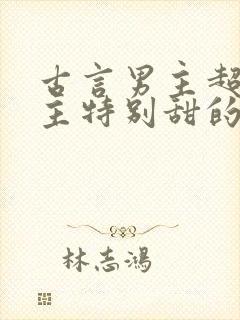 古言男主超
主特别甜的
林志鸿